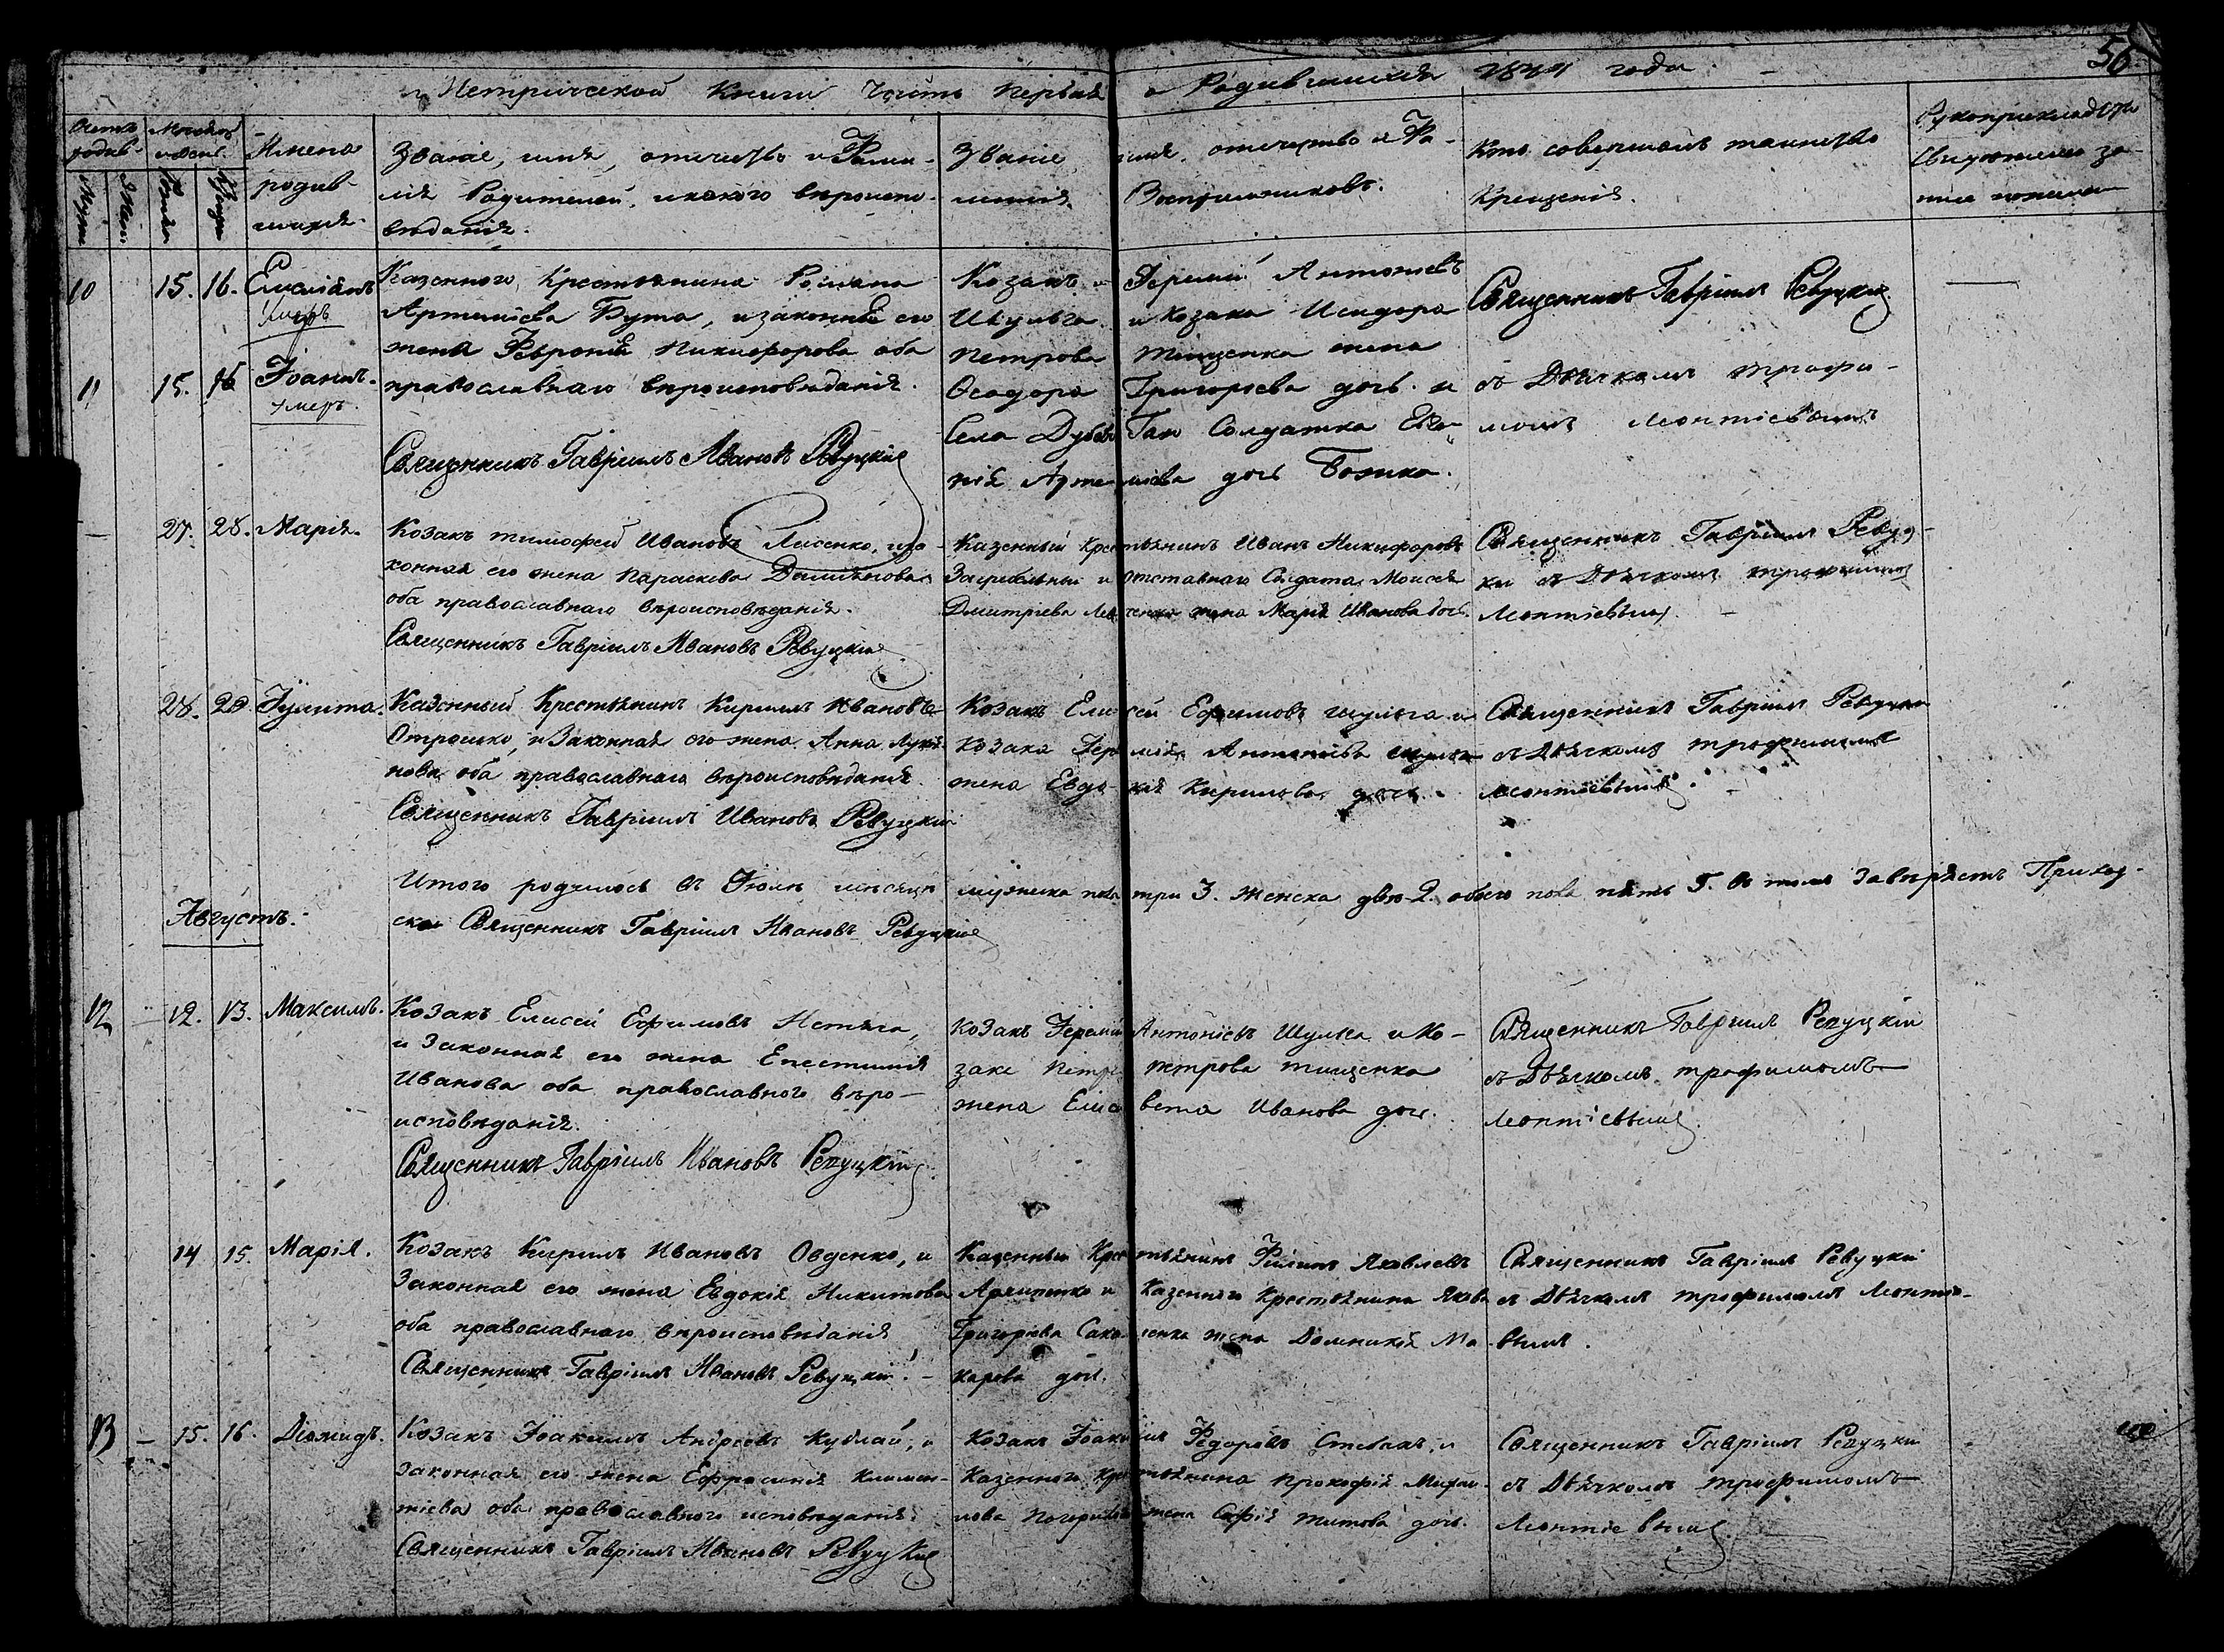 Метрической Книги Часть Первая о Родившихся года
56
Счетъ родив-
Мужеска
Женска
Месяцъ и День
Рожден
Крещен
Имена
родив-
шихся
Званіе, имя, отчество и Фами-
лія Родителей, и какого вѣроиспо-
вѣданія.
Званіе имя, отчество и Фа-
милія Воспріемниковъ.
Кто совершалъ таинство
Крещенія.
Рукоприкладство
10 15. 16. Емеліанъ
умеръ
11 15. 16 Іоаннъ.
умеръ.
Казенного Крестьянина Романа
Артеміева Бута, и законная его
жена Февронія Никифорова оба
православнаго вѣроисповѣданія.
Священникъ Гавріилъ Ивановъ Ревуцкій
Козакъ Іеремій Антоніевъ
Шульга и Козака Исидора
Петрова Тищенка жена
Ѳеодора Григорьева дочь и
Села Гам Солдатка Евге-
нія Артеміева дочь Божко.
Священникъ Гавріилъ Ревуцкій
съ Дьячкомъ Трофи-
момъ Леонтіевымъ
27. 28. Марія.
Козакъ Тимофей Ивановъ Лисенко, и за-
конная его жена Параскева Даміянова
оба православнаго вѣроисповѣданія.
Священникъ Гавріилъ Ивановъ Ревуцкій
Казенный Крестьянинъ Иванъ Никифоровъ
и Отставнаго Солдата Моисея
Дмитріева жена Марія Иванова дочь.
Священникъ Гавріилъ Ревуц-
кій съ Дьячкомъ Трофимомъ
Леонтіевымъ.
28. 29. Іулита.
Казенный Крестьянинъ Кирилъ Ивановъ
Отрошко, и Законная его жена Анна Лукья-
нова оба православнаго вѣроисповѣданія
Священникъ Гавріилъ Ивановъ Ревуцкій
Козакъ Елисей Ефимовъ Шульга и
Козака Іереміи Антоніева Шульги
жена Евдокія Кирилова дочь.
Священникъ Гавріилъ Ревуцкій
съ Дьячкомъ Трофимомъ
Леонтіевымъ.
Итого родилось въ Іюлѣ месяцѣ мужеска пола три 3. женска двѣ 2. обоего пола пять 5. въ томъ Завѣряетъ Приход-
скій Священникъ Гавріилъ Ивановъ Ревуцкій
Августъ.
12 12. 13. Максимъ.
Козакъ Елисей Ефимовъ Нетяга,
и Законная его жена Епестимія
Иванова оба православного вѣро-
исповѣданія.
Священникъ Гавріилъ Ивановъ Ревуцкій
Козакъ Іеремій Антоніевъ Шульга и Ко-
зака Петра Петрова Тищенка
жена Елисавета Иванова дочь.
Священникъ Гавріилъ Ревуцкій
съ Дьячкомъ Трофимомъ
Леонтіевымъ.
14 15. Марія.
Козакъ Кирилъ Ивановъ Овденко, и
Законная его жена Евдокія Никитова
оба православнаго вѣроисповѣданія
Священникъ Гавріилъ Ивановъ Ревуцкій.
Казенный Крестьянинъ Филипъ Яковлевъ
Архипенко и Казенного Крестьянина Якова
Григорьева жена Домникія Ма-
карова дочь.
Священникъ Гавріилъ Ревуцкій
съ Дьячкомъ Трофимомъ Леонтіе-
вымъ.
13 15. 16. Діомидъ.
Козакъ Іоакимъ Андреевъ Кублай, и
Законная его жена Ефросинія Климен-
тіева оба православного исповѣданія.
Священникъ Гавріилъ Ивановъ Ревуцкій
Козакъ Іоакимъ Федоровъ и
Казенного Крестьянина Прокофія Михаи-
лова жена Софія Титова дочь.
Священникъ Гавріилъ Ревуцкій
съ Дьячкомъ Трофимомъ
Леонтіевымъ.